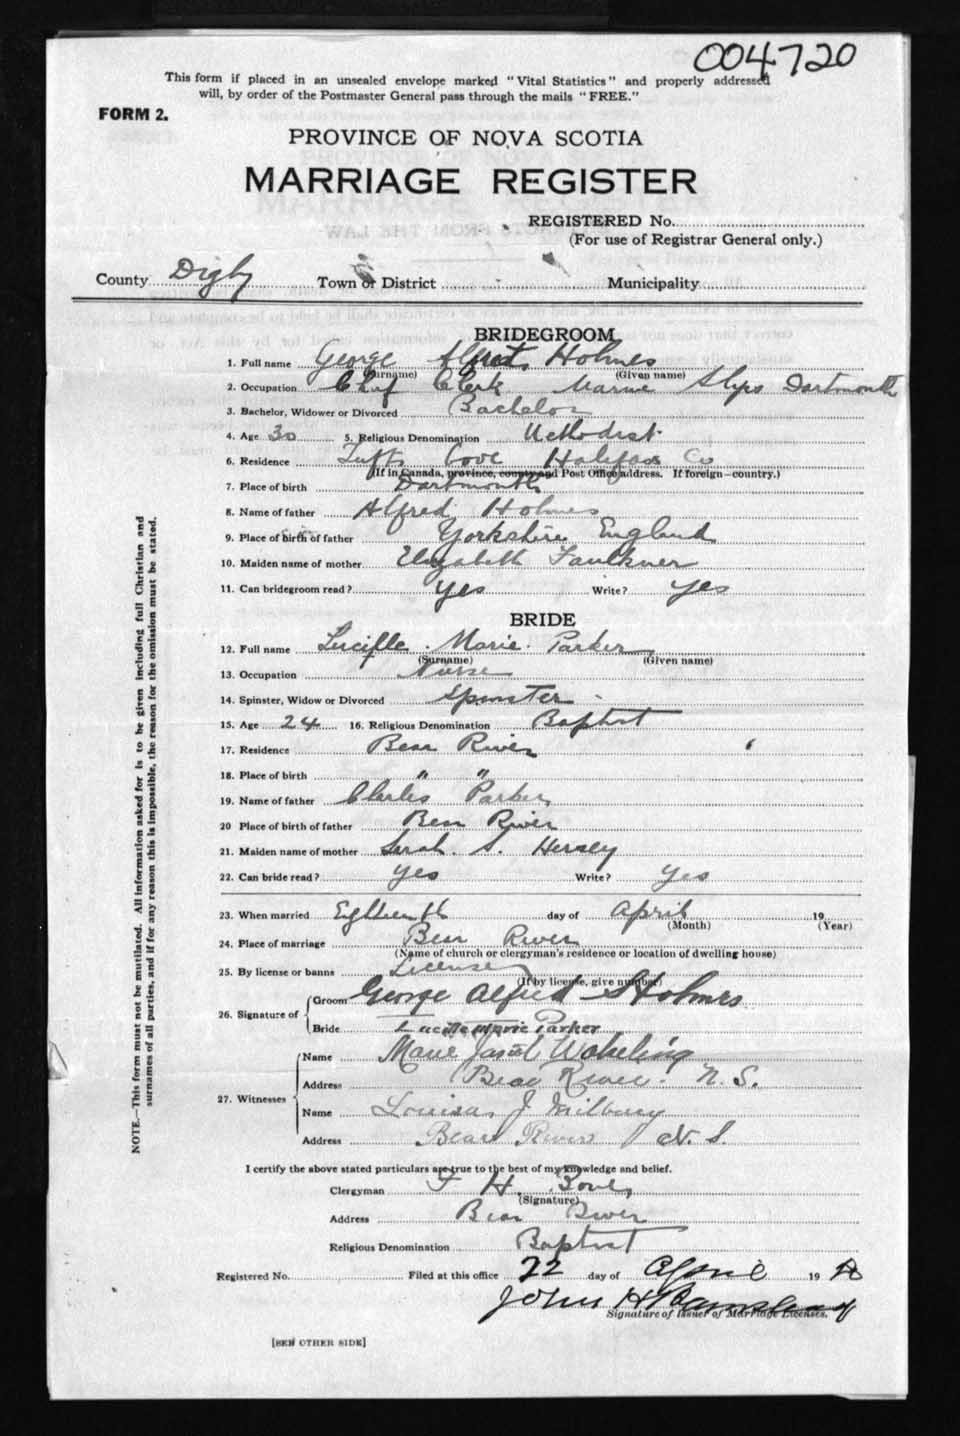 004720
This form if placed in an unsealed envelope marked "Vital Statistics" and properly addressed
will, by order of the Postmaster General pass through the mails "FREE."
FORM 2.
PROVINCE OF NOVA SCOTIA
MARRIAGE REGISTER
REGISTERED No.
(For use of Registrar General only.)
County Digby Town or District Municipality
BRIDEGROOM
1. Full name George Holmes
(Surname) (Given name)
2. Occupation Chief Clerk Marine Slips Dartmouth
3. Bachelor, Widower or Divorced Bachelor
4. Age 30 5. Religious Denomination Methodist
6. Residence Tufts Cove Halifax Co
(If in Canada, province, county and Post Office address. If foreign—country.)
7. Place of birth Dartmouth
8. Name of father Alfred Holmes
9. Place of birth of father Yorkshire England
10. Maiden name of mother Elizabeth Faulkner
11. Can bridegroom read? yes Write? yes
BRIDE
12. Full name Lucille Marie Parker
(Surname) (Given name)
13. Occupation Nurse
14. Spinster, Widow or Divorced Spinster
15. Age 24 16. Religious Denomination Baptist
17. Residence Bear River
18. Place of birth " "
19. Name of father Charles Parker
20 Place of birth of father Bear River
21. Maiden name of mother Sarah S. Hersey
22. Can bride read? yes Write? yes
23. When married Eighteenth day of April 19
(Month) (Year)
24. Place of marriage Bear River
(Name of church or clergyman's residence or location of dwelling house)
25. By license or banns License
(If by license, give number)
26. Signature of Groom George Alfred Holmes
Bride Lucille Marie Parker
27. Witnesses
Name Marie Wakeling
Address Bear River. N.S.
Name Louisa J Milbury
Address Bear River N.S.
I certify the above stated particulars are true to the best of my knowledge and belief.
Clergyman H.
(Signature)
Address Bear River
Religious Denomination Baptist
Registered No. Filed at this office 22 day of April 19
John H
Signature of Issuer of Marriage Licenses.
[SEE OTHER SIDE]
NOTE.—This form must not be mutilated. All information asked for is to be given including full Christian and
surnames of all parties, and if for any reason this is impossible, the reason for the omission must be stated.